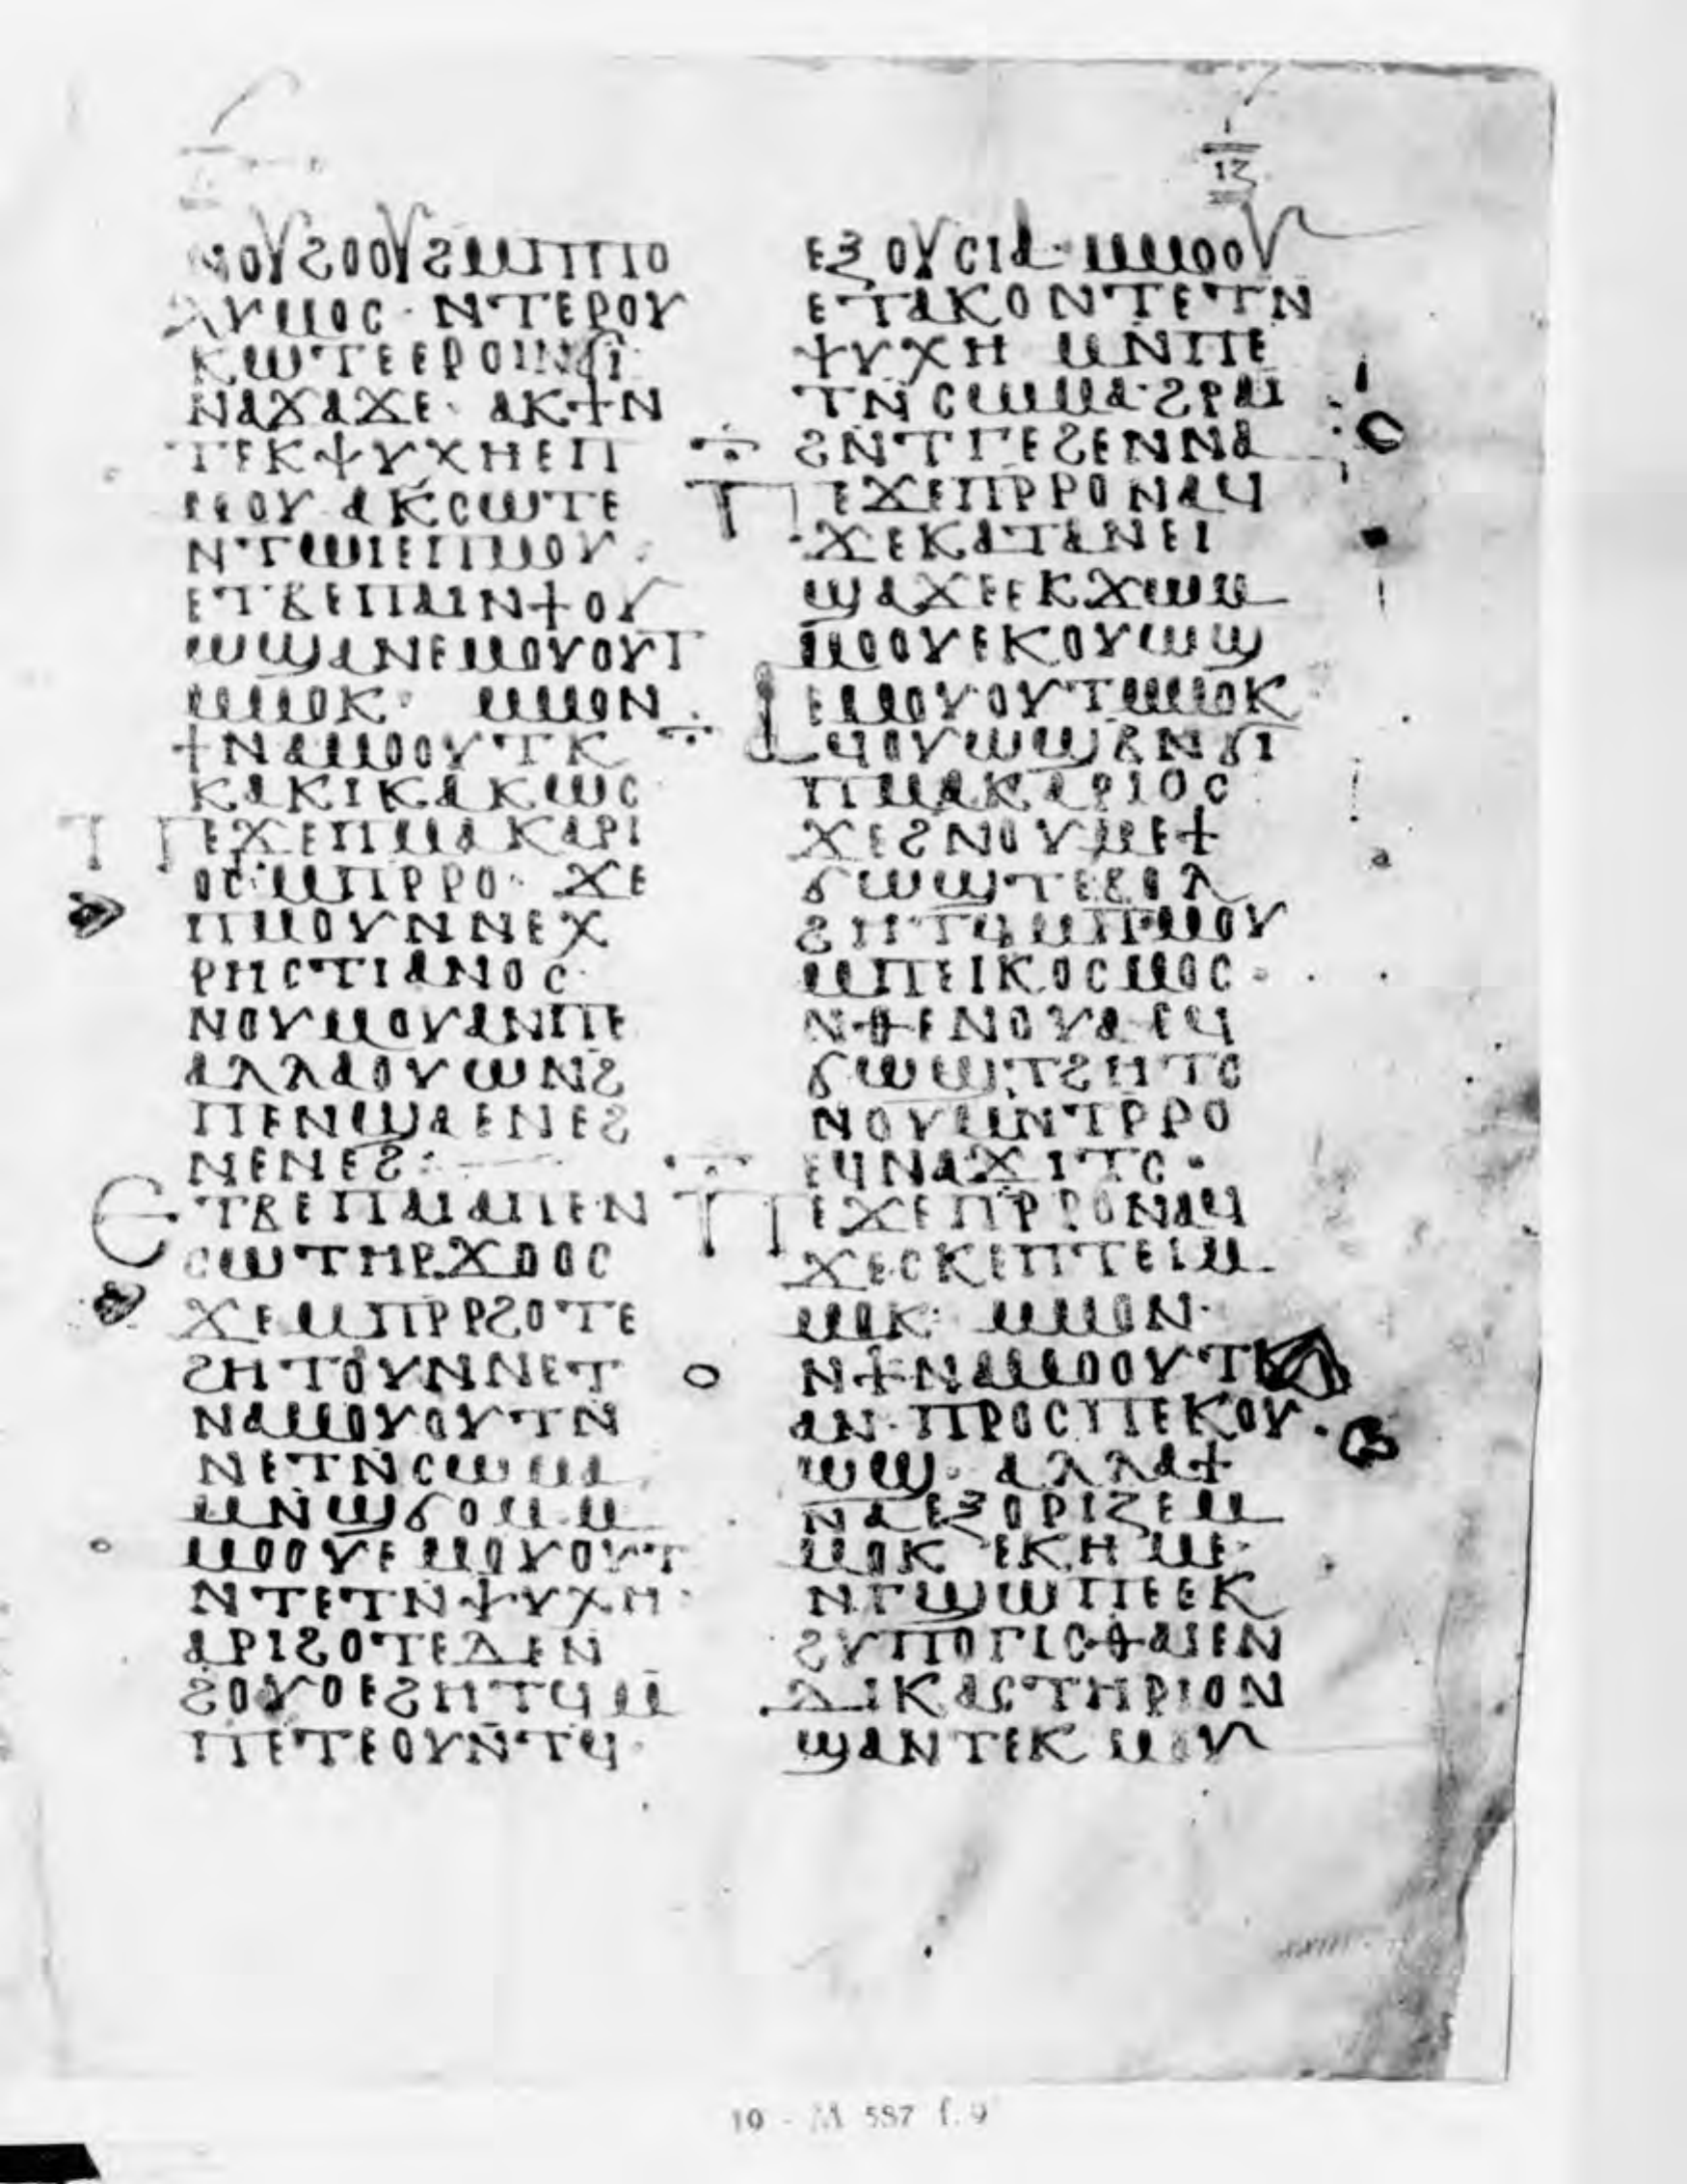 ⲓⲍ
ⲛⲟⲩϩⲟⲟⲩϩⲙⲡⲡⲟ
ⲗⲩⲙⲟⲥ· ⲛⲧⲉⲣⲟⲩ
ⲕⲱⲧⲉⲉⲣⲟⲛⲛϭⲓ
ⲛⲁϫⲁϫⲉ· ⲁⲕϯⲛ
ⲧⲉⲕⲯⲩⲭⲏⲉⲡ
ⲙⲟⲩ ⲁⲕⲥⲱⲧⲉ
ⲛⲧⲱⲓⲉⲡⲙⲟⲩ·
ⲉⲧⲃⲉⲡⲁⲓⲛϯⲟⲩ
ⲱϣⲁⲛⲉⲙⲟⲩⲟⲩⲧ
ⲙⲙⲟⲕ· ⲙⲙⲟⲛ
ϯⲛⲁⲙⲟⲟⲩⲧⲕ
ⲕⲁⲕⲓⲕⲁⲕⲱⲥ
ⲡⲉϫⲉⲡⲙⲁⲕⲁⲣⲓ
ⲟⲥⲙⲡⲣⲣⲟ· ϫⲉ
ⲡⲙⲟⲩⲛⲛⲉⲭ
ⲣⲏⲥⲧⲓⲁⲛⲟⲥ·
ⲛⲟⲩⲙⲟⲩⲁⲛⲡⲉ
ⲁⲗⲗⲁⲟⲩⲱⲛϩ
ⲡⲉⲛϣⲁⲉⲛⲉϩ
ⲛⲉⲛⲉϩ:
ⲉⲧⲃⲉⲡⲁⲓⲁⲡⲉⲛ
ⲥⲱⲧⲏⲣϫⲟⲟⲥ
ϫⲉⲙⲡⲣⲣϩⲟⲧⲉ
ϩⲏⲧⲟⲩⲛⲛⲉⲧ
ⲛⲁⲙⲟⲩⲟⲩⲧⲛ
ⲛⲉⲧⲛⲥⲱⲙⲁ
ⲙⲛϣϭⲟⲙⲙ
ⲙⲟⲟⲩⲉⲙⲟⲩⲟⲩⲧ
ⲛⲧⲉⲧⲛⲯⲩⲭⲏ·
ⲁⲣⲓϩⲟⲧⲉⲇⲉⲛ
ϩⲟⲩⲟⲉϩⲏⲧϥⲙ
ⲡⲉⲧⲉⲟⲩⲛⲧϥ·
ⲉⲝⲟⲩⲥⲓⲁ· ⲙⲙⲟⲟⲩ
ⲉⲧⲁⲕⲟⲛⲧⲉⲧⲛ
ⲯⲩⲭⲏ ⲙⲛⲡⲉ
ⲧⲛⲥⲱⲙⲁ·ϩⲣⲁⲓ
ϩⲛⲧⲅⲉϩⲉⲛⲛⲁ
ⲡⲉϫⲉⲡⲣⲣⲟⲛⲁϥ
ϫⲉⲕⲁⲧⲁⲛⲉⲓ
ϣⲁϫⲉⲉⲕϫⲱⲙ
ⲙⲟⲟⲩⲉⲕⲟⲩⲱϣ
ⲉⲙⲟⲩⲟⲩⲧⲙⲙⲟⲕ
ⲁϥⲟⲩⲱϣⲃⲛϭⲓ
ⲡⲙⲁⲕⲁⲣⲓⲟⲥ
ϫⲉϩⲛⲟⲩⲙⲉϯ
ϭⲱϣⲧⲉⲃⲟⲗ
ϩⲏⲧϥⲙⲡⲙⲟⲩ
ⲙⲡⲉⲓⲕⲟⲥⲙⲟⲥ·
ⲛⲑⲉⲛⲟⲩⲁⲉϥ
ϭⲱϣⲧϩⲏⲧⲥ
ⲛⲟⲩⲙⲛⲧⲣⲣⲟ
ⲉϥⲛⲁϫⲓⲧⲥ·
ⲡⲉϫⲉⲡⲣⲣⲟⲛⲁϥ
ϫⲉⲥⲕⲉⲡⲧⲉⲓⲙ
ⲙⲟⲕ· ⲙⲙⲟⲛ·
ⲛϯⲛⲁⲙⲟⲟⲩⲧⲕ
ⲁⲛ·ⲡⲣⲟⲥⲡⲉⲕⲟⲩ
ⲱϣ· ⲁⲗⲗⲁϯ
ⲛⲁⲉⲝⲟⲣⲓⲍⲉⲙ
ⲙⲟⲕ ⲉⲕⲏⲙⲉ·
ⲛⲅϣⲱⲡⲉⲉⲕ
ϩⲩⲡⲟⲅⲓⲥⲑⲁⲓⲉⲛ
ⲇⲓⲕⲁⲥⲧⲏⲣⲓⲟⲛ
ϣⲁⲛⲧⲉⲕⲙⲟⲩ
10 - M 587 f.9